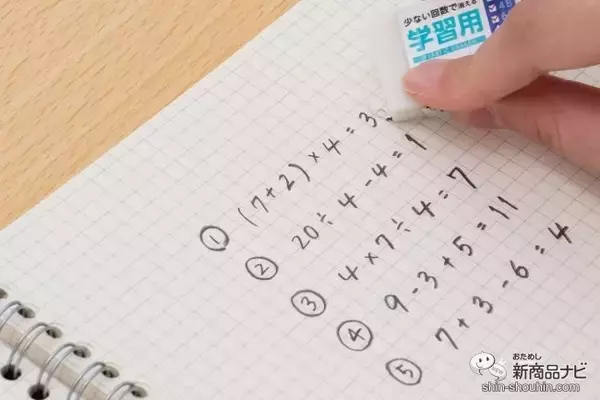 少ない回数で消える
学習用
① (7+2)×4=3
② 20÷4-4=1
③ 4×7÷4=7
④ 9-3+5=11
⑤ 7+3-6=4
おためし
新商品ナビ
shin-shouhin.com